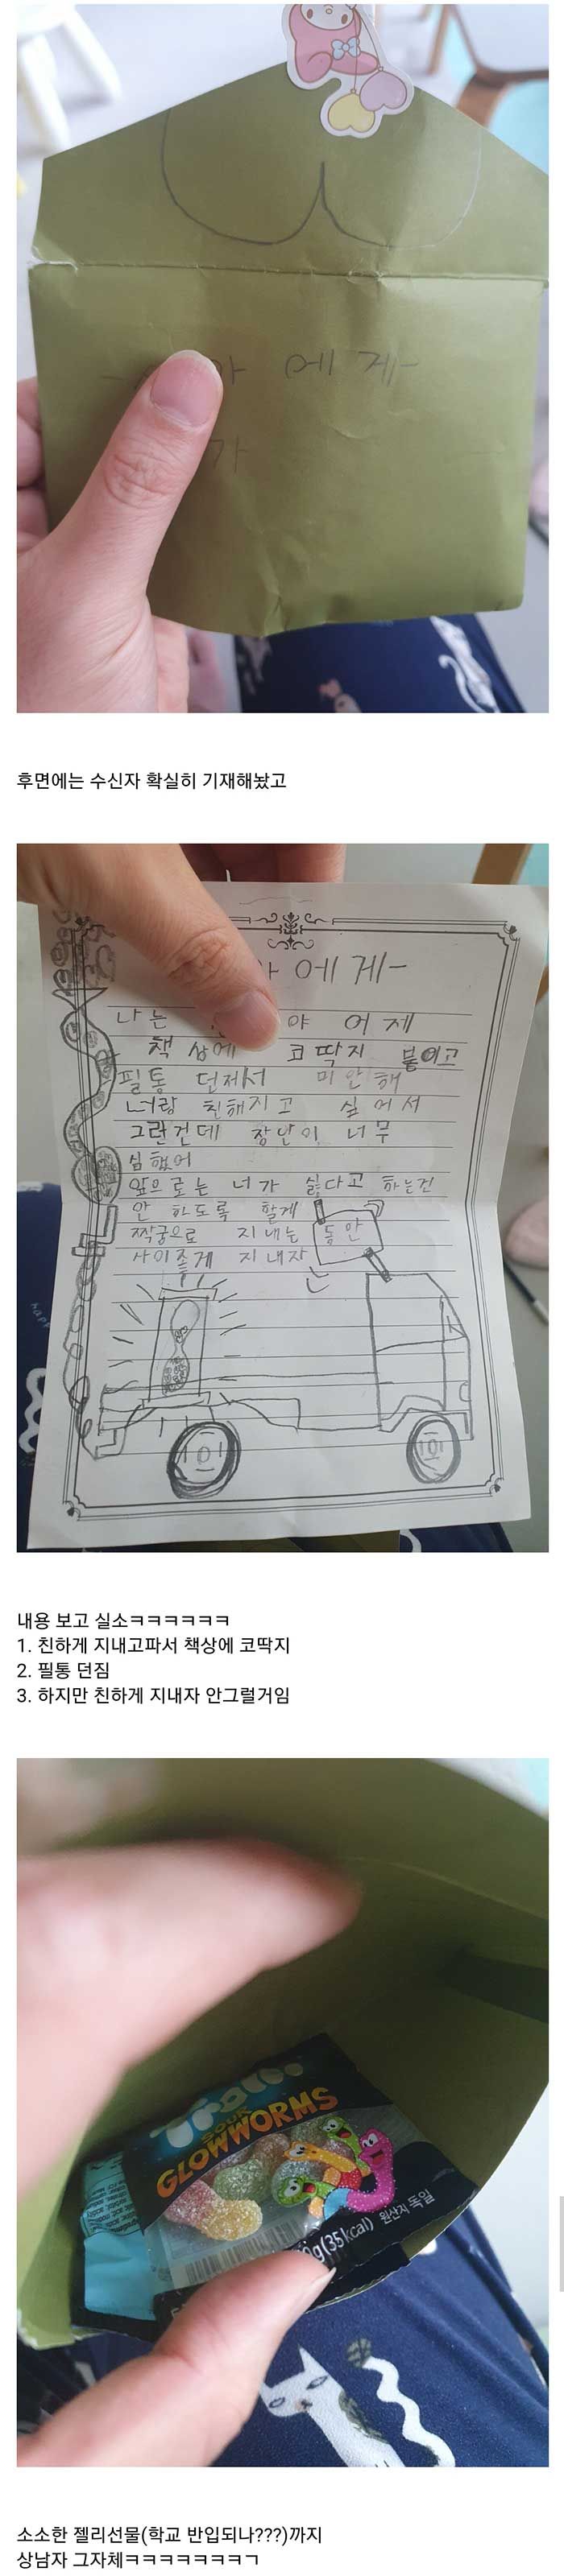 에게
가
후면에는 수신자 확실히 기재해놨고
에게
나는 야 어제
책상에 코딱지 붙이고
필통 던져서 미안해
너랑 친해지고 싶어서
그런건데 장난이 너무
심했어
앞으로는 너가 싫다고 하는건
안 하도록 할게
짝궁으로 지내는 동안
사이좋게 지내자
내용 보고 실소ㅋㅋㅋㅋㅋㅋ
1. 친하게 지내고파서 책상에 코딱지
2. 필통 던짐
3. 하지만 친하게 지내자 안그럴거임
Trolli
SOUR
GLOWWORMS
g(35kcal) 원산지 독일
소소한 젤리선물(학교 반입되나???)까지
상남자 그자체ㅋㅋㅋㅋㅋㅋㅋㄱ